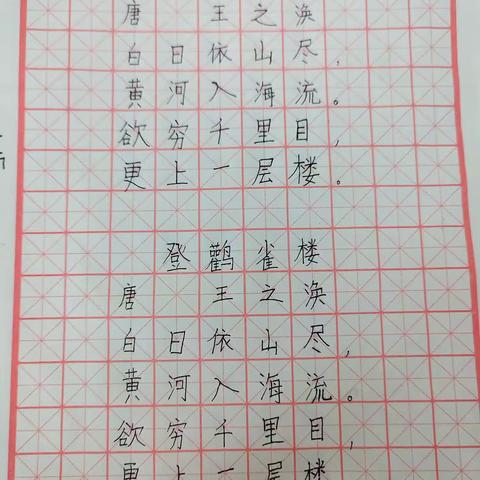 唐 王之涣
白日依山尽，
黄河入海流。
欲穷千里目，
更上一层楼。
登鹳雀楼
唐 王之涣
白日依山尽，
黄河入海流。
欲穷千里目，
更上一层楼